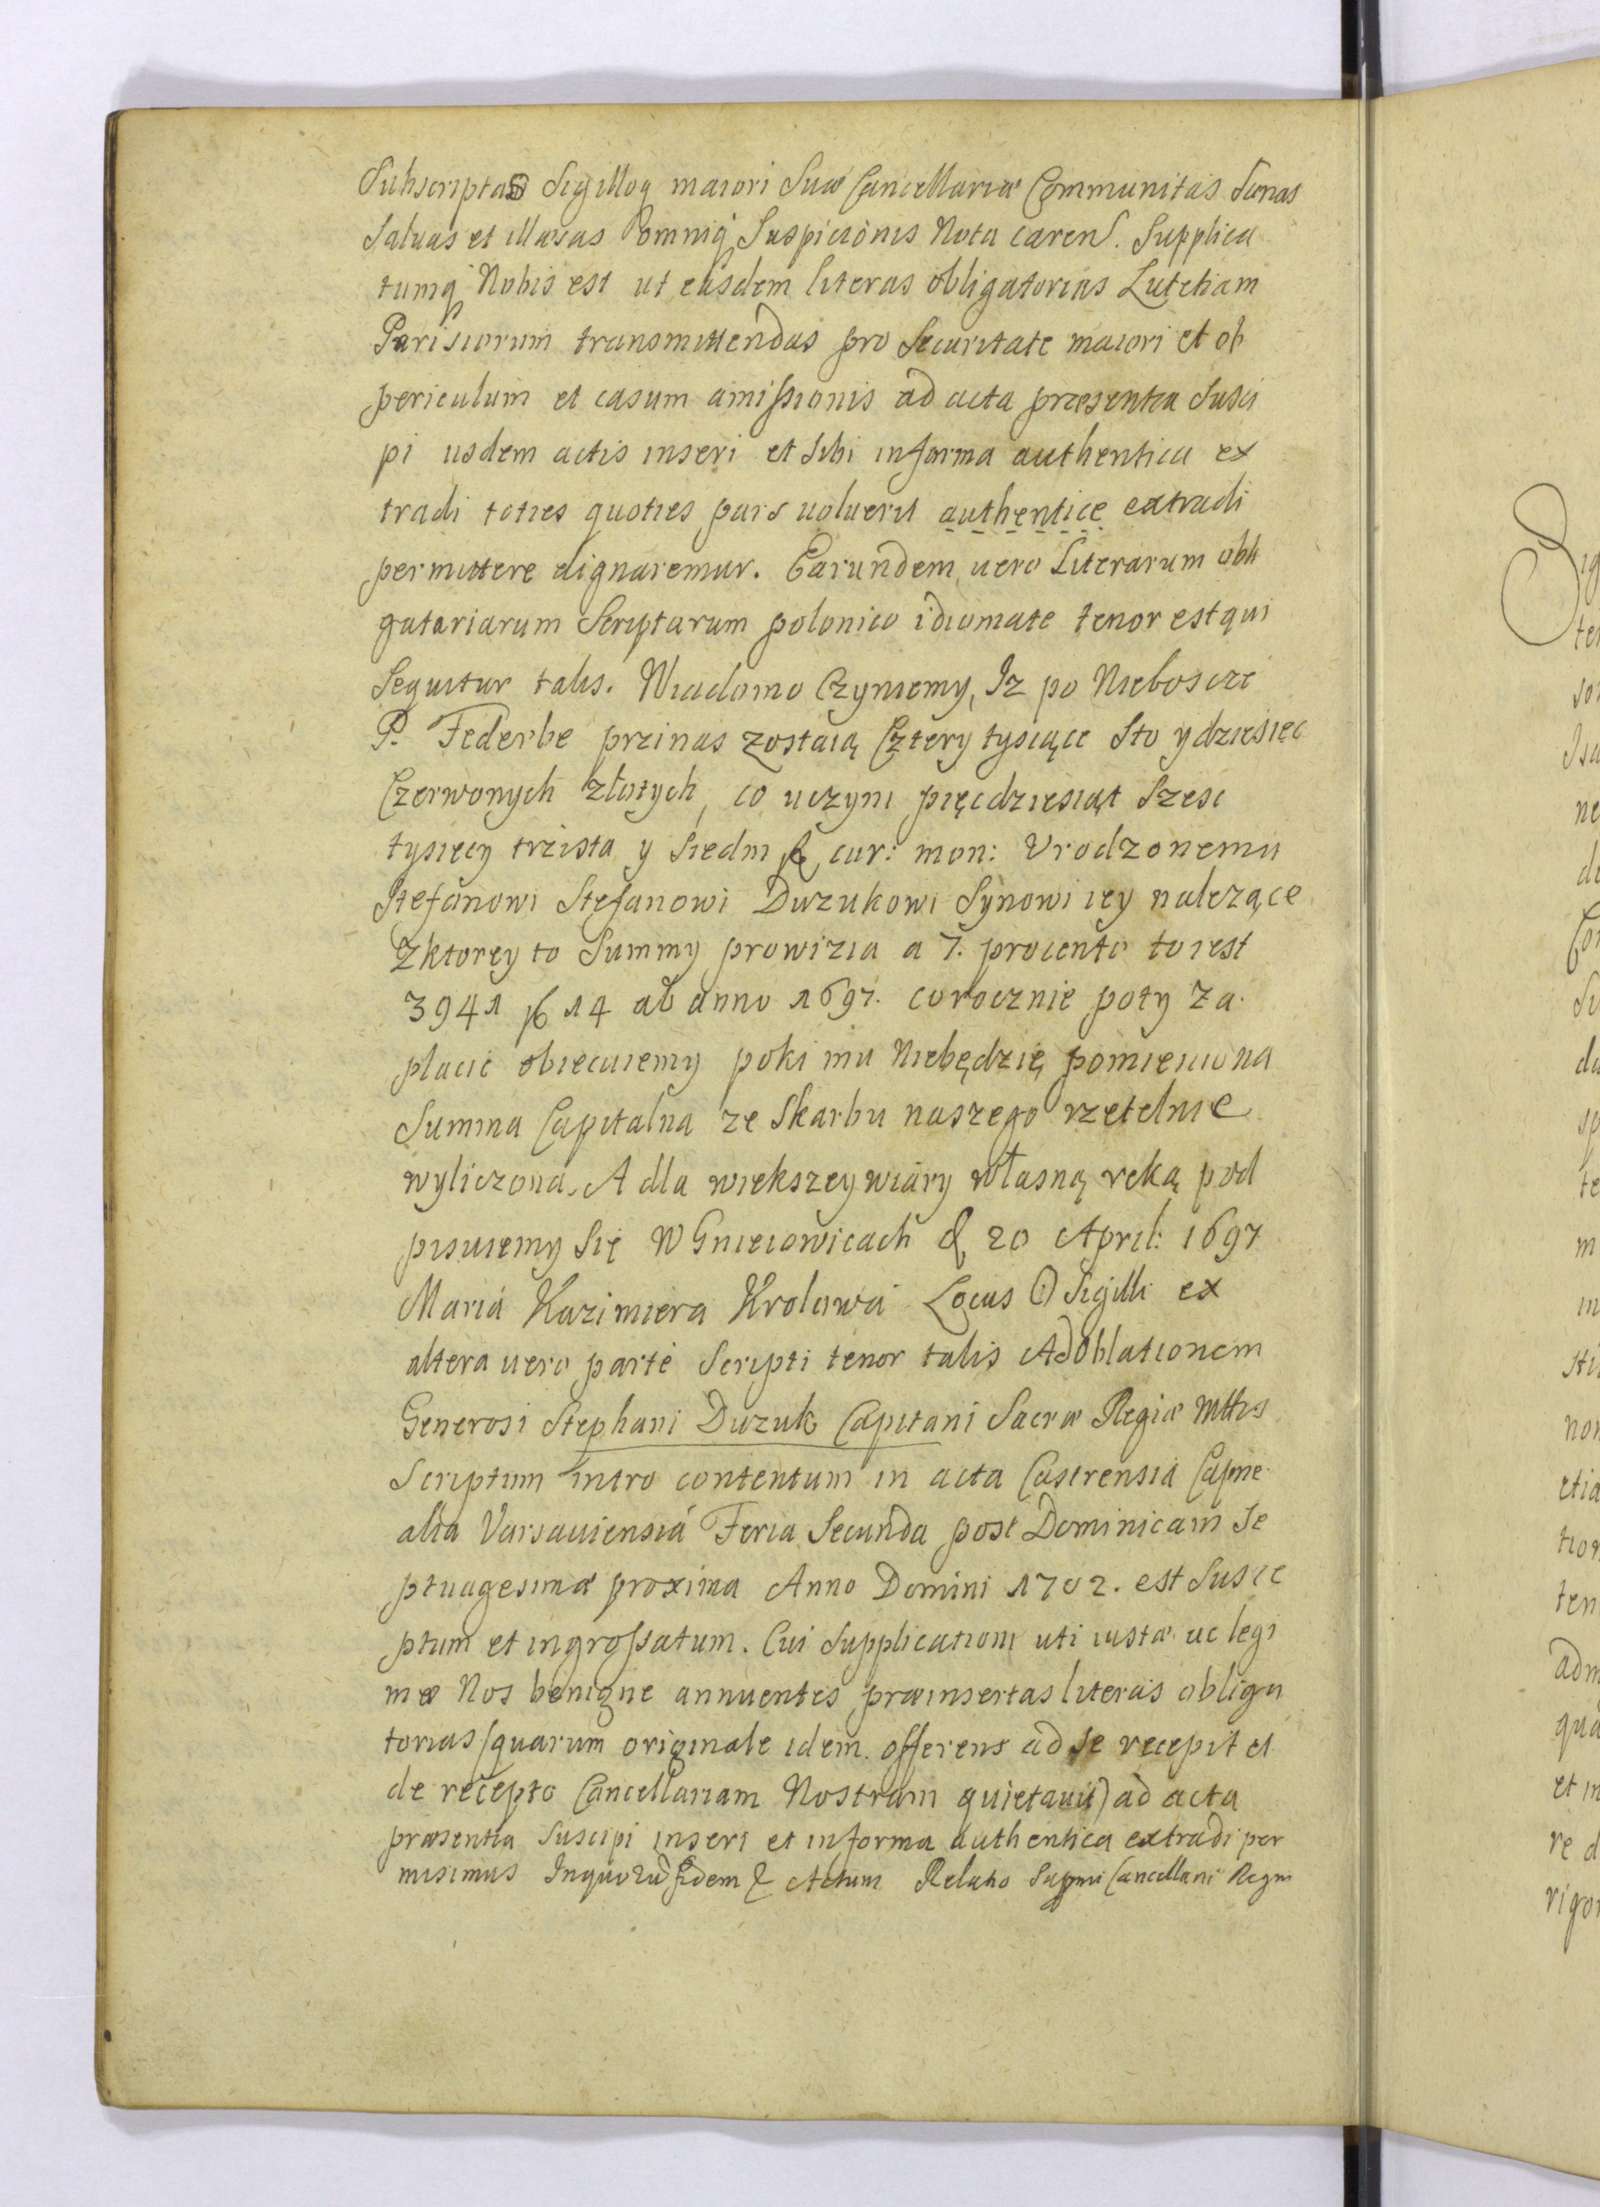 Subscriptas Sigilloq maiori Suæ Cancellariæ Communitas Sanas
Saluas et illæsas omniq Suspicionis Nota caren. Supplica
tumq Nobis est ut easdem literas obligatorias Lutetiam
Parisiorum transmittendas pro Securitate maiori et ob
periculum et casum amissionis ad acta præsentia Susci
pi usdem actis inseri et Sibi in forma authentica ex
tradi toties quoties pars uoluerit authentice extradi
permittere dignaremur. Earundem uero Literarum obli
gatoriarum Scriptarum polonico idiomate tenor est qui
Sequitur talis. Wiadomo Czyniemy, Iz po Nieboszcze
P. Federbe przinas zostaią Cztery tysiące Sto y dziesięc
Czerwonych złotych, co uczyni pięcdziesiąt Szesc
tysięcy trzista y Siedm fl cur: mon: Vrodzonemu
Stefanowi Stefanowi Duzukowi Synowi iey nalezące
Zktorey to Summy prowizia a 7. procento to iest
3941 fl 14 ab anno 1697. corocznie poty za
placic obiecuiemy poki mu Niebędzię pomieniona
Summa Capitalna ze Skarbu naszego rzetelnie
wyliczona. A dla wiekszey wiary własną reką pod
pisuiemy Się W Gniewicach d 20 April: 1697
Maria Kazimiera Krolowa Locus Sigilli ex
altera uero parte Scripti tenor talis Ad Oblationem
Generosi Stephani Duzuk Capitani Sacræ Regiæ Mttis
Scriptum intro contentum in acta Castrensia Capine
alia Varsauiensia Feria Secunda post Dominicam Se
ptuagesimæ proxima Anno Domini 1702. est Susce
ptum et ingrossatum. Cui Supplicationi uti iustæ ac legi
mæ Nos benigne annuentes præinsertas literas obliga
torias (quarum originale idem offerens ad se recepit et
de recepto Cancellariam Nostram quietauit) ad acta
præsentia Suscipi inseri et in forma authentica extradi per
misimus In quorū fidem & Actum Relatio Supmi Cancellarii Regni